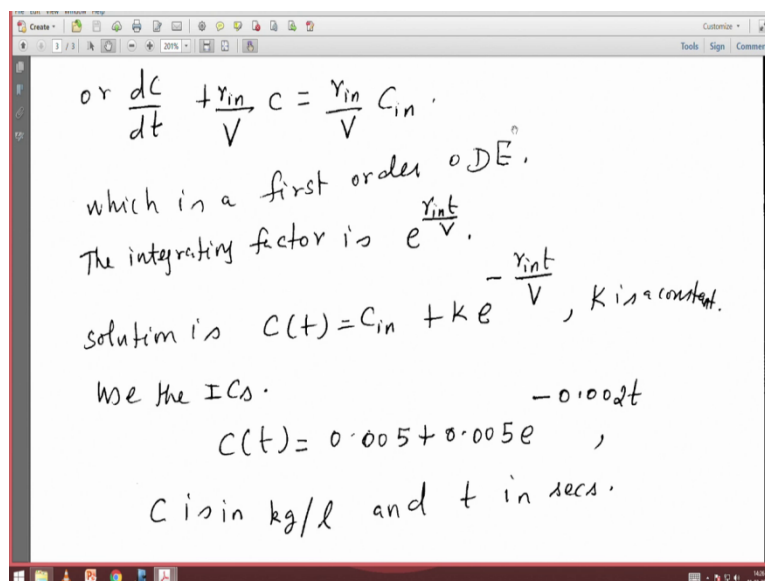 Create
Customize
3 / 3
201%
Tools Sign Comment
or dc/dt + r_in/V c = r_in/V C_in .
which is a first order ODE.
The integrating factor is e^(r_in t/V) .
solution is C(t) = C_in + k e^(- r_in t/V) , K is a constant.
Use the ICs.
C(t) = 0.005 + 0.005 e^(-0.002t) ,
C is in kg/l and t in secs.